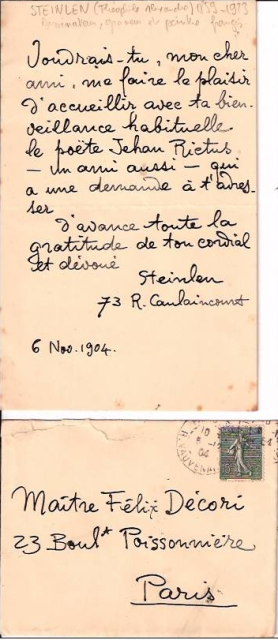 STEINLEN (Théophile Alexandre) 1859-1923
Dessinateur, graveur et peintre français
Voudrais-tu, mon cher
ami, me faire le plaisir
d'accueillir avec ta bien-
veillance habituelle
le poëte Jehan Rictus
– un ami aussi – qui
a une demande à t'adres-
ser
d'avance toute la
gratitude de ton cordial
et dévoué
Steinlen
73 R. Caulaincourt
6 Nov. 1904.
Maître Félix Décori
23 Boult Poissonnière
Paris